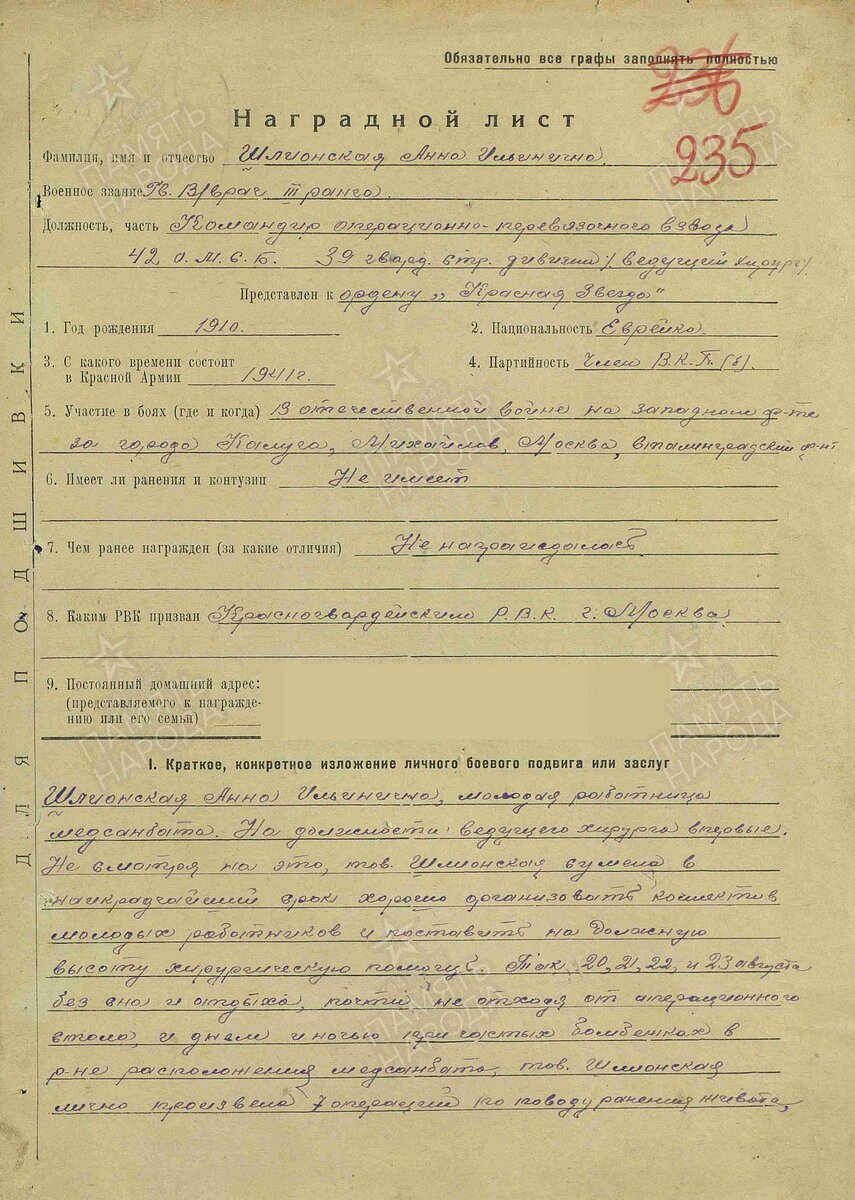 Обязательно все графы заполнять полностью
236
235
Наградной лист
Фамилия, имя и отчество Шлионская Анна Ильинична.
Военное звание Гв. В/врач III ранга.
Должность, часть Командир операционно-перевязочного взвода
42 о.м.с.б. 39 гвард. стр. дивизии /ведущий хирург/
Представлен к ордену „Красная Звезда"
1. Год рождения 1910.
2. Национальность Еврейка.
3. С какого времени состоит
в Красной Армии 1941г.
4. Партийность Член В.К.П.(б).
5. Участие в боях (где и когда) В отечественной войне на западном ф-те
за города Калуга, Михайлов, Москва, Сталинградский ф-нт
6. Имеет ли ранения и контузии Не имеет
7. Чем ранее награжден (за какие отличия) Не награждалась
8. Каким РВК призван Красногвардейским Р.В.К. г. Москва.
9. Постоянный домашний адрес:
(представляемого к награжде-
нию или его семьи)
I. Краткое, конкретное изложение личного боевого подвига или заслуг
Шлионская Анна Ильинична, молодая работница
медсанбата. На должности ведущего хирурга впервые.
Не смотря на это, тов. Шлионская сумела в
наикрадчайший срок хорошо организовать коллектив
молодых работников и поставить на должную
высоту хирургическую помощь. Так 20, 21, 22, и 23 августа
без сна и отдыха, почти не отходя от операционного
стола, и днем и ночью при частых бомбежках в
р-не расположения медсанбата, тов. Шлионская
лично произвела 7 операций по поводу ранения живота,
ДЛЯ ПОДШИВКИ
ПАМЯТЬ НАРОДА
ПАМЯТЬ НАРОДА
ПАМЯТЬ НАРОДА
ПАМЯТЬ НАРОДА
ПАМЯТЬ НАРОДА
ПАМЯТЬ НАРОДА